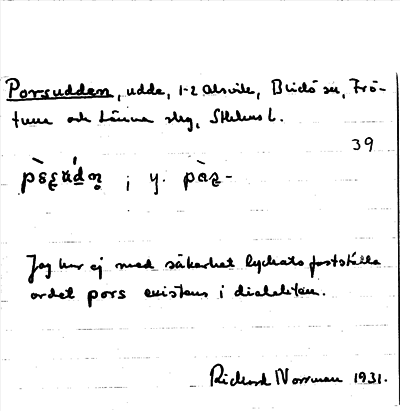 Porsudden, udde, 1-2 Alsvik, Blidö sn, Frö-
tuna och Länna slg, Sthlms l.
39
; y.
Jag har ej med säkerhet lyckats fastställa
ordet pors existens i dialekten.
Richard Norrman 1931.